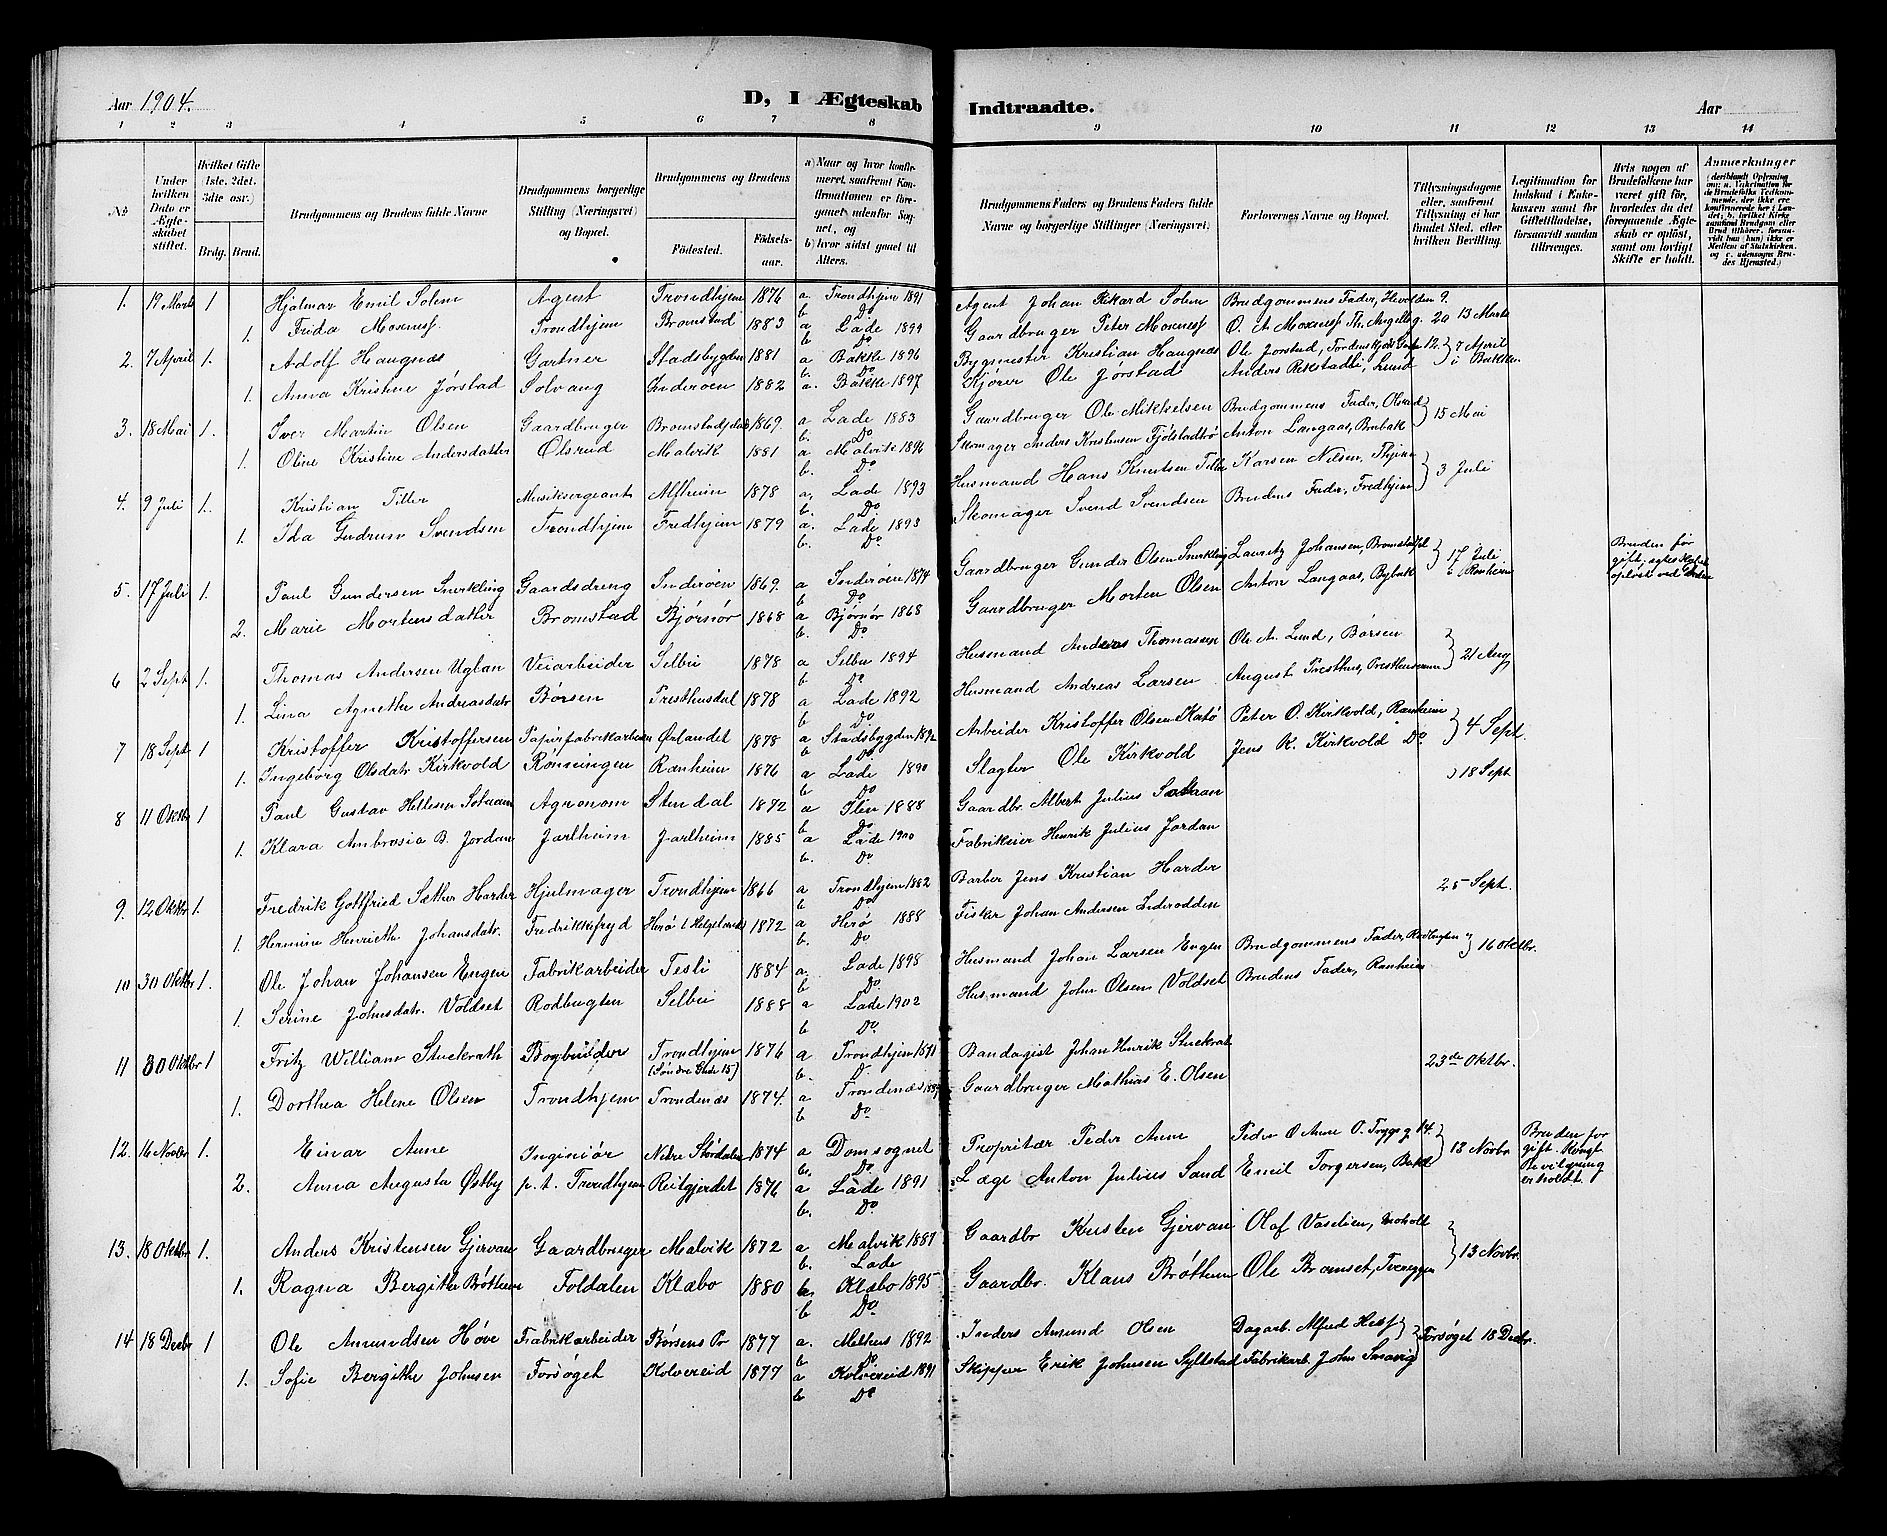 Aar 1904. D, I Ægteskab Indtraadte. Aar
1 2 3 4 5 6 7 8 9 10 11 12 13 14
No
Under hvilken Dato er Ægteskabet stiftet.
Hvilket Gifte 1ste, 2det, 3dte osv.)
Brdg. Brud.
Brudgommens og Brudens fulde Navne
Brudgommens borgerlige Stilling (Næringsvei) og Bopæl.
Brudgommens og Brudens
Fødested. Fødselsaar.
a) Naar og hvor konfirmeret, saafremt Konfirmationen er foregaaet udenfor Sognet, og
b) hvor sidst gaaet til Alters.
Brudgommens Faders og Brudens Faders fulde Navne og borgerlige Stillinger (Næringsvei)
Forlovernes Navne og Bopæl.
Tillysningsdagene eller, saafremt Tillysning ei har fundet Sted, efter hvilken Bevilling.
Legitimation for Indskud i Enkekassen samt for Giftetilladelse, forsaavidt saadan tiltrænges.
Hvis nogen af Brudefolkene har været gift før, hvorledes da det foregaaende Ægteskab er opløst, samt om lovligt Skifte er holdt.
Anmærkninger
1. 19 Marts 1 Hjalmar Emil Solem Agent Trondhjem 1876 a Trondhjem 1891 b Do Agent Johan Rikard Solem Brudgommens Fader, 9.
1 Frida Moxness. Trondhjem Bromstad 1883 a Lade 1899 b Do Gaardbruger Peter Moxness O. A. Moxness 20 13 Marts
2. 7 April 1. Adolf Haugnæs Gartner Stadsbygden 1881 a Bakke 1896 b Do Bygmester Kristian Haugnæs Ole Jørstad, 12. 7 April
1. Anna Kristine Jørstad Solvang Inderøen 1882 a. Bakke 1897 Kjører Ole Jørstad Anders Rekstadli, Lund i Bakke
3. 18 Mai 1. Iver Martin Olsen Gaardbruger 1869. a Lade 1883 b. Do Gaardbruger Ole Mikkelsen Brudgommens Fader, Olsrud 15 Mai
1. Oline Kristine Andersdatter Olsrud Malvik 1881 a Malvik 1896 b. Do Skomager Anders Kristensen Anton Langaas, Brubak
4. 9 Juli 1. Kristian Tiller Musiksergeant Alfheim 1878 a, Lade 1893 b. Do Husmand Hans Knutsen Tiller Karsen Nilsen, Thjem 3 Juli
1. Ida Gudrun Svendsen Trondhjem Fredhjem 1879 a. Lade 1893 b. Do Skomager Svend Svendsen Brudens Fader, Fredhjem
5. 17 Juli 1. Paul Gundersen Snerkling Gaardsdreng Inderøen 1869. a Inderøen 1874 b Do Gaardbruger Gunder Olsen Snerkling Lauritz Johansen, 17 Juli i Ranheim Bruden før gift, opløst ved
2. Marie Mortensdatter Bromstad Bjørnør 1868 a Bjørnør 1868 b. Do Gaardbruger Morten Olsen Anton Langaas, Bybak
6 2 Sept 1. Thomas Andersen Uglan Veiarbeider Selbu 1878 a Selbu 1894 b. Do Husmand Anders Thomassen Ole A. Lund, Børsen 21 Aug
1. Lina Agnethe Andreasdatr Børsen Presthusdal 1878 a Lade 1892 b Do Husmand Andreas Larsen August Presthus,
7 18 Septr 1 Kristoffer Kristoffersen Papirfabrikarbeider Ørlandet 1878 a Stadsbygden 1892 b Do Arbeider Kristoffer Olsen Peter O. Kirkvold, Ranheim 4 Sept.
1. Ingeborg Olsdatr Kirkvold Ranheim 1876 a Lade 1890 b Do Slagter Ole Kirkvold Jens K. Kirkvold Do 18 Sept
8 11 Oktbr 1 Paul Gustav Agronom Stendal 1872 a Ilen 1888 b Do Gaardbr. Albert Julius
1. Klara Ambrosia B. Jordan Jarlheim Jarlheim 1885 a Lade 1900 b. Do Henrik Julius Jordan
9. 12 Oktbr 1. Fredrik Gottfried Sæther Harder Hjulmager Trondhjem 1866 a Trondhjem 1882 b Do Barber Jens Kristian Harder 25 Sept.
1. Hermine Henriette Johansdatr. Fredrikkefryd Herø i Helgeland 1872 a Herø 1888 b. Do Fisker Johan Andersen
10 30 Oktbr 1. Ole Johan Johansen Engen Fabrikarbeider Tesli 1884 a. Lade 1898 b Do Husmand Johan Larsen Engen Brudgommens Fader, 16 Oktbr.
1. Serine Johnsdatr. Voldset Rodbugten Selbu 1888 a Lade 1902 b Do. Husmand John Olsen Voldset Brudens Fader, Ranheim
11 30 Oktbr 1 Fritz William Stuckrath Bogbinder Trondhjem 1876 a Trondhjem 1891 b. D Bandagist Johan Henrik Stuckrat 23de Oktbr.
1. Dorthea Helene Olsen Trondhjem Trondenæs 1874. a Trondenæs b Do Gaardbruger Mathias E. Olsen
12. 16 Novbr 1. Einar Aune Ingeniør Nedre Størdalen 1874 a Domsognet b. Do Proprietær Peder Aune Peder O Aune 14. 18 Novbr Bruden før gift. Kongl Bevilgning erholdt.
2. Anna Augusta Østby p.t. Trondhjem Reitgjerdet 1876 a Lade 1891 b. Do. Læge Anton Julius Sand Emil Torgersen, Bakl
13. 18 Oktbr 1. Anders Kristensen Gjervan Gaardbruger Malvik 1872 a Malvik 1887 b. Lade Gaardbr Kristen Gjervan Olaf Vaselien, Moholt 13 Novbr.
1. Ragna Bergithe Brøttem Foldalen Klæbo 1880 a. Klæbo 1895 b Do Gaardbr. Klaus Brøttem Ole Bromset,
14 18 Decbr 1 Ole Amundsen Høve Fabrikarbeider Børsens Pr 1877 a. Melhus 1892 b Do Inders Amund Olsen Dagarb. Alfred Forsøget 18 Decbr.
1. Sofie Bergithe Johnsen Forsøget Kolvereid 1877 a Kolvereid 1891 b Do Skipper Erik Johnsen Fabrikarb. John